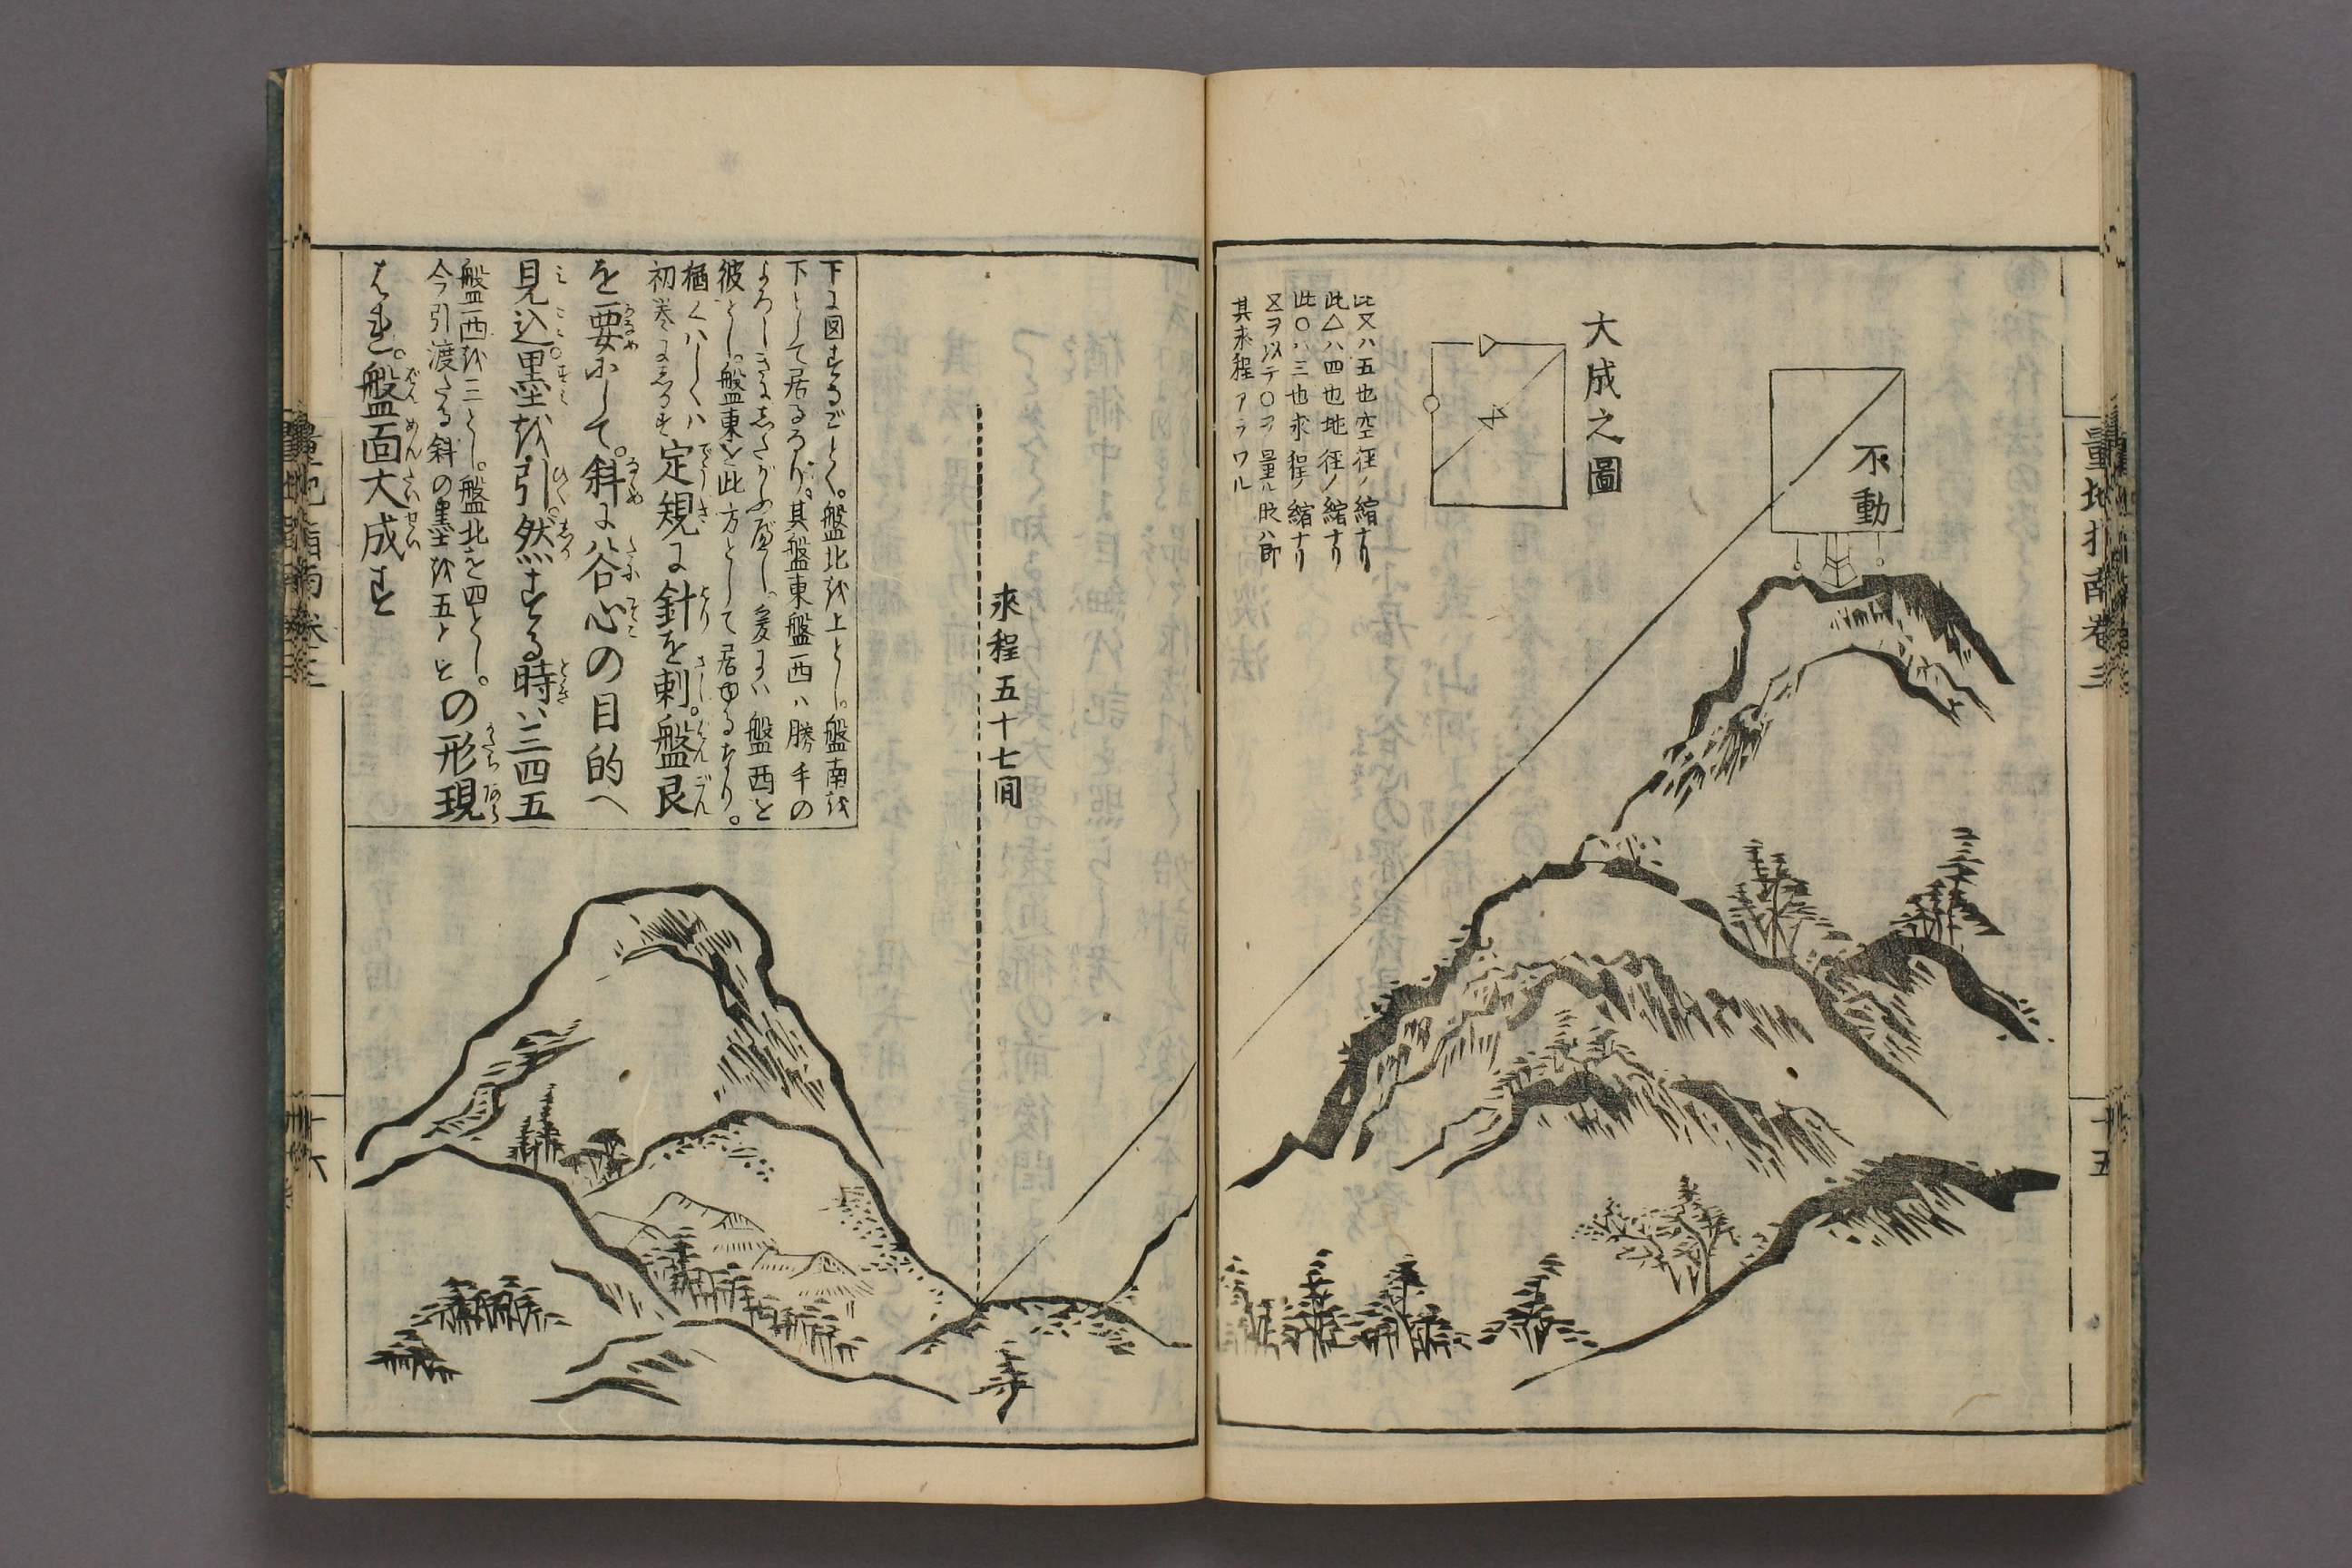 量地指南卷三
十五
不動
大成之圖
此又ハ五也空径ノ縮ナリ
此△ハ四也地径ノ縮ナリ
此〇ハ三也求程ノ縮ナリ
又ヲ以テ〇ヲ量ル所ハ即
其求程アラワル
求程五十七間
下に図するごとく。盤北を上とし。盤南を
下として居るなり。其盤東盤西ハ勝手の
よろしきにしたがふべし。爰にハ盤西を
彼とし。盤東を此方として居ゆるなり。
猶くハしくハ
初巻にしるす
定規に針を刺。盤艮
を要にして。斜に谷心の目的へ
見込墨を引。然する時ハ三四五
盤西を三とし。盤北を四とし。
今引渡たる斜の墨を五とす
の形現
はれ。盤面大成す
量地指南卷三
十六